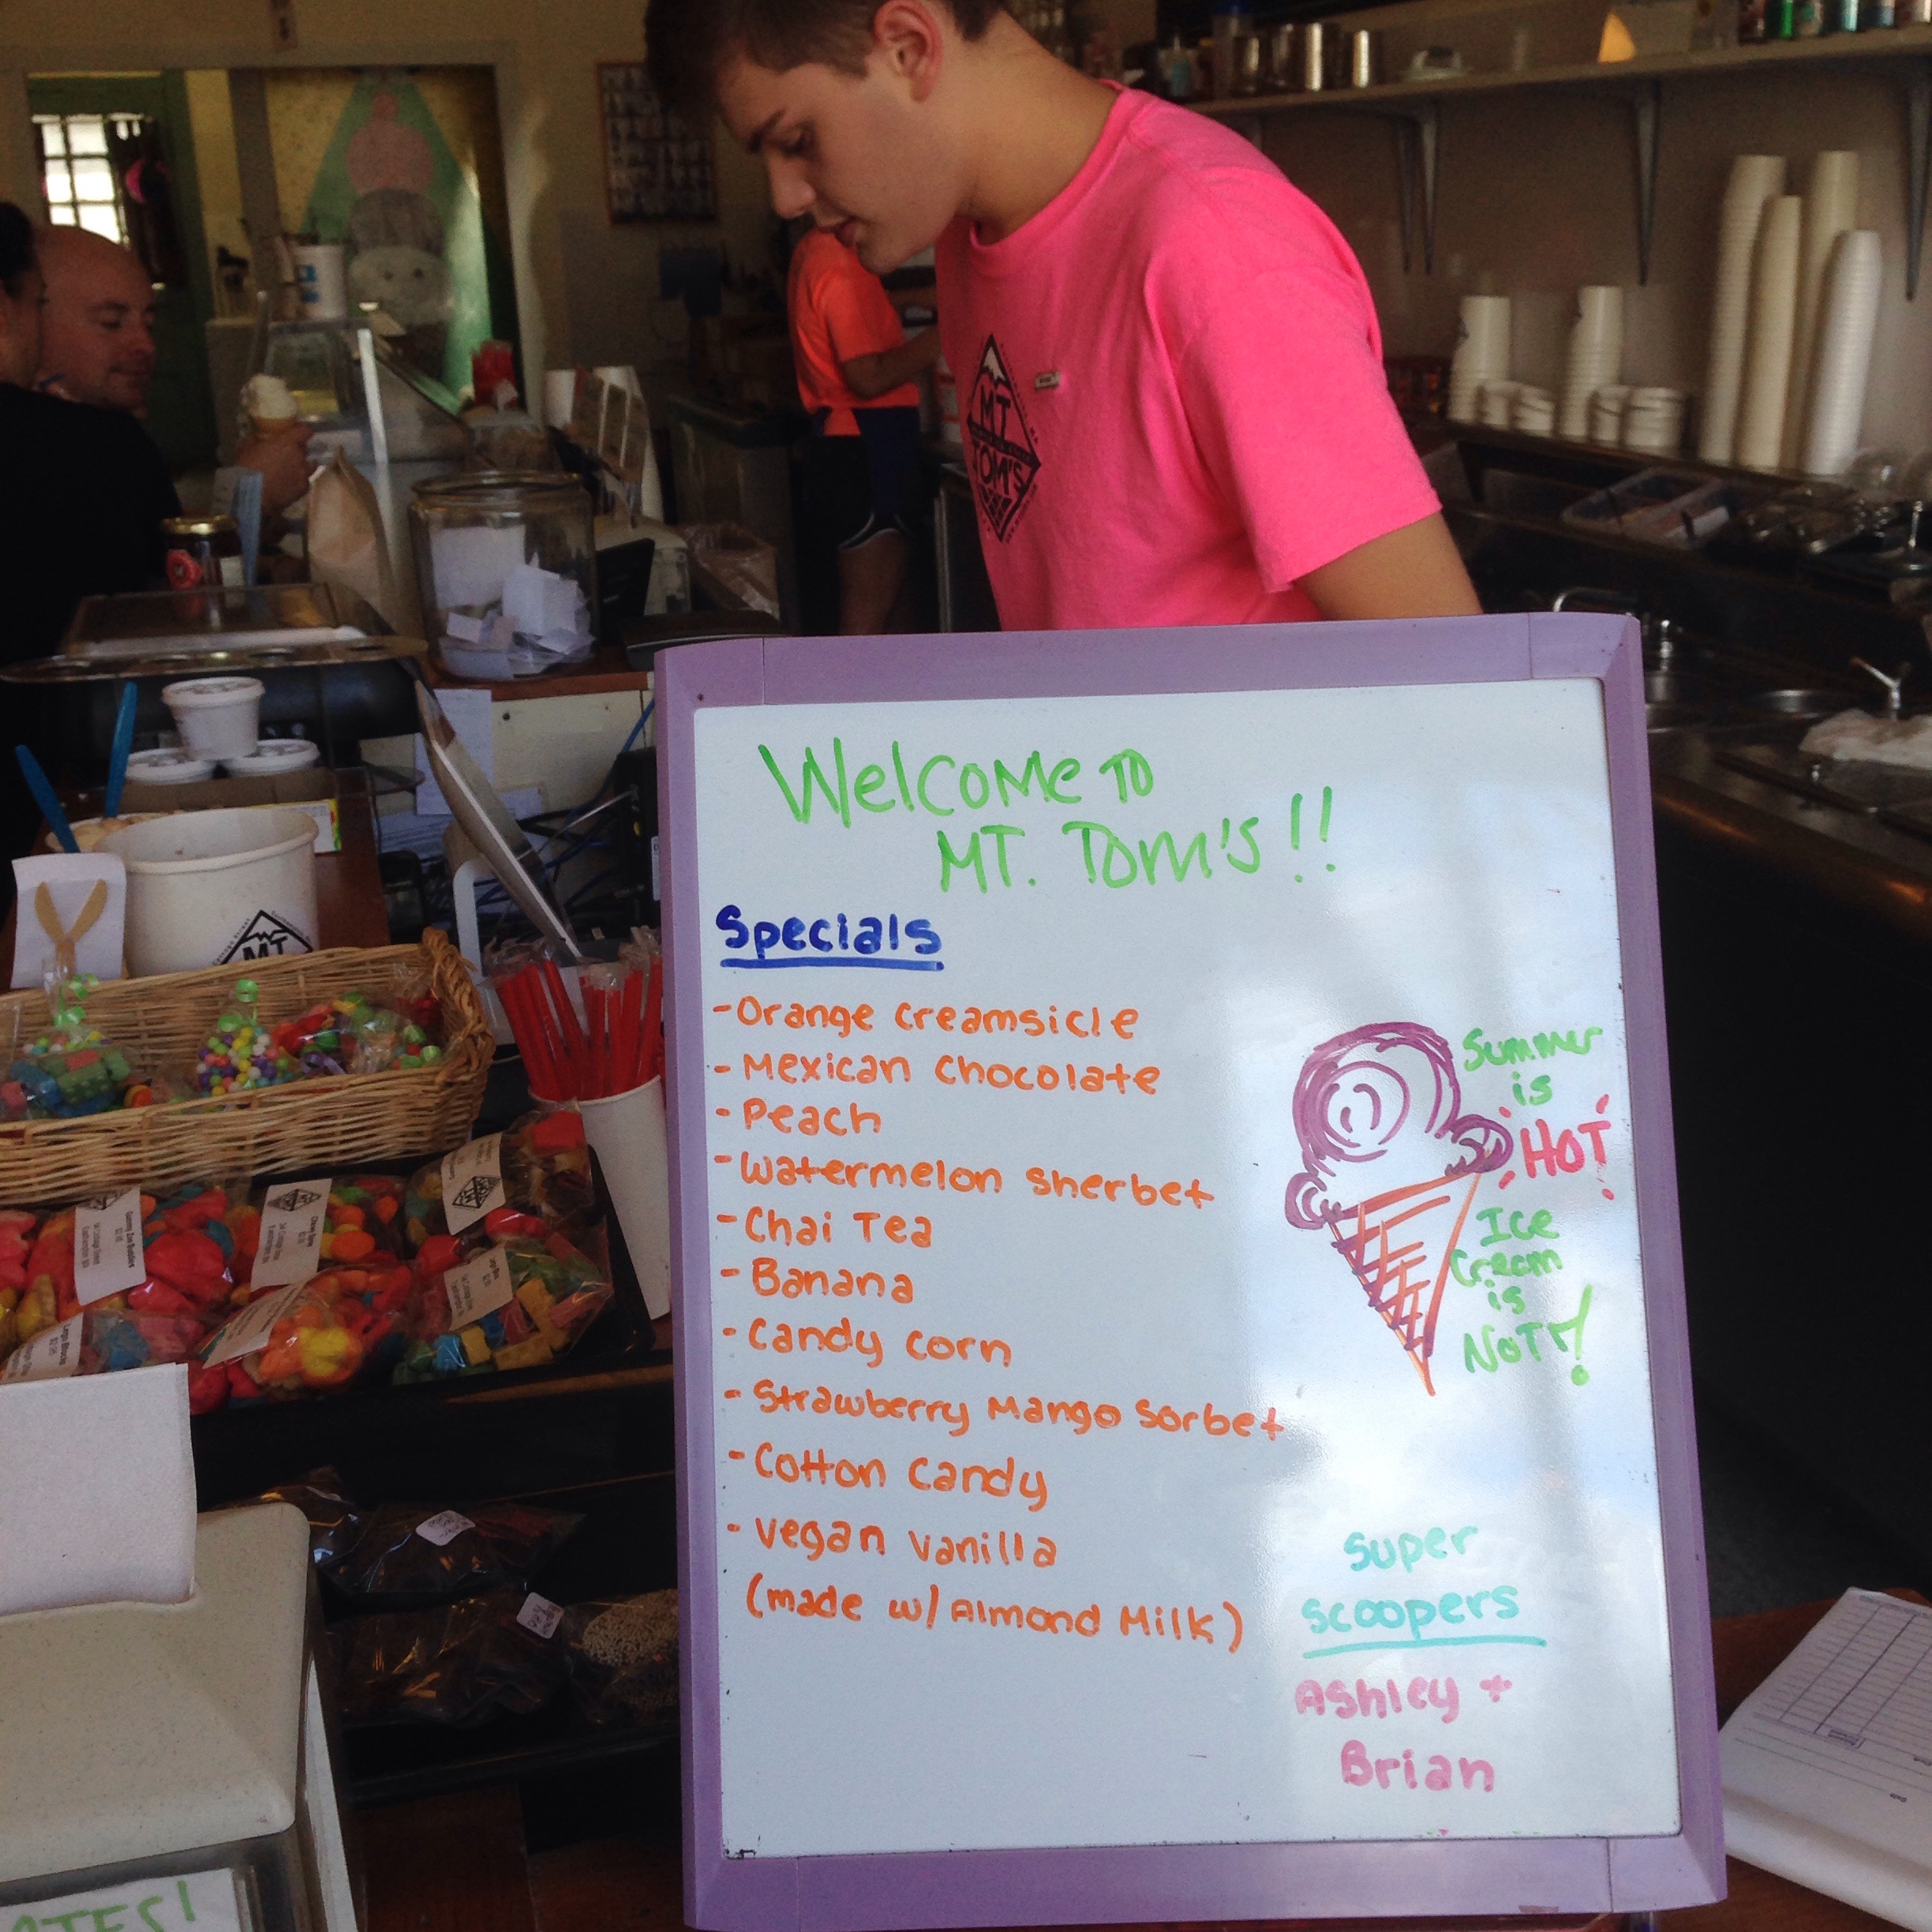 MT
TOM'S
Welcome TO
MT. Tom's!!
Specials
- Orange Creamsicle
- Mexican Chocolate
- Peach
- Watermelon Sherbet
- Chai Tea
- Banana
- Candy Corn
- Strawberry Mango Sorbet
- Cotton Candy
- Vegan Vanilla
(made w/ Almond Milk)
Summer
is
HOT!
Ice
Cream
is
NOT!
Super
Scoopers
Ashley +
Brian
MT